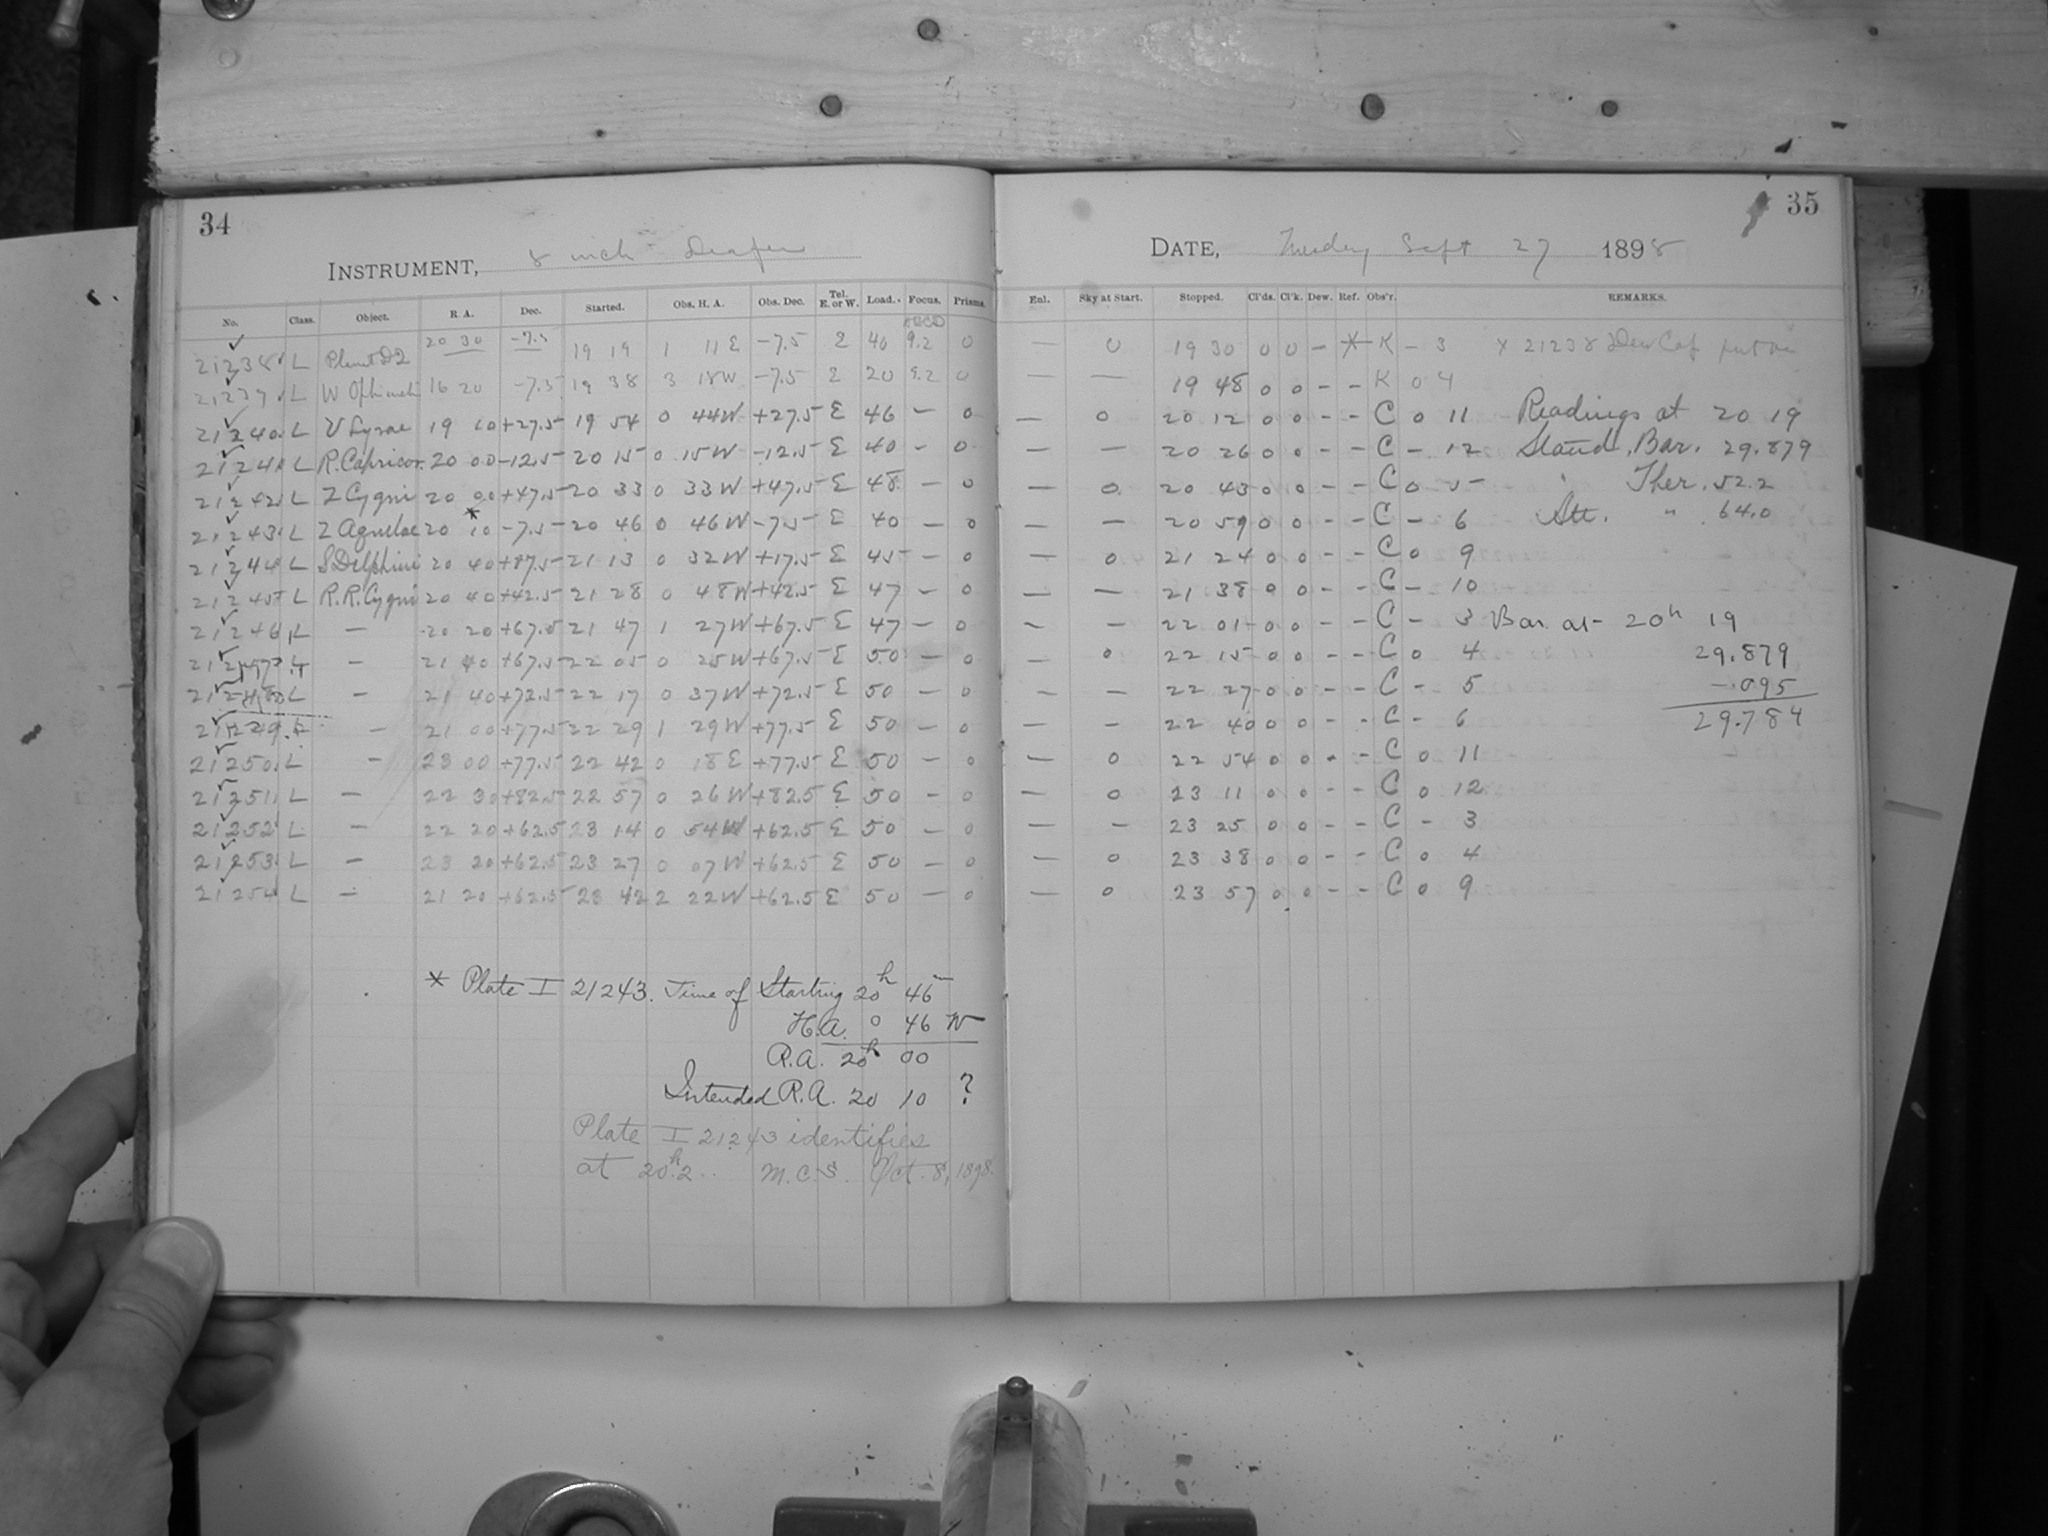 34
INSTRUMENT, 8 inch Draper
No. Class. Object. R. A. Dec. Started. Obs. H. A. Obs. Dec. Tel. E. or W. Load. Focus. Prisms.
ABCD
21238 L Planet DQ 20 30 -7.5 19 19 1 11 E -7.5 E 40 9.2 0
21239 L W Ophiuchi 16 20 -7.5 19 38 3 18 W -7.5 E 20 9.2 0
21240 L V Lyrae 19 10 +27.5 19 54 0 44 W +27.5 E 46 - 0
21241 L R. Capricor. 20 00 -12.5 20 15 0 15 W -12.5 E 40 - 0
21242 L Z Cygni 20 00 +47.5 20 33 0 33 W +47.5 E 48 - 0
21243 L Z Aquilae 20 10* -7.5 20 46 0 46 W -7.5 E 40 - 0
21244 L S Delphini 20 40 +17.5 21 13 0 32 W +17.5 E 45 - 0
21245 L R.R. Cygni 20 40 +42.5 21 28 0 48 W +42.5 E 47 - 0
21246 L - 20 20 +67.5 21 47 1 27 W +67.5 E 47 - 0
21247 L - 21 40 +67.5 22 05 0 25 W +67.5 E 50 - 0
21248 L - 21 40 +72.5 22 17 0 37 W +72.5 E 50 - 0
21249 L - 21 00 +77.5 22 29 1 29 W +77.5 E 50 - 0
21250 L - 23 00 +77.5 22 42 0 18 E +77.5 E 50 - 0
21251 L - 22 30 +82.5 22 57 0 26 W +82.5 E 50 - 0
21252 L - 22 20 +62.5 23 14 0 54 W +62.5 E 50 - 0
21253 L - 23 20 +62.5 23 27 0 07 W +62.5 E 50 - 0
21254 L - 21 20 +62.5 23 42 2 22 W +62.5 E 50 - 0
* Plate I 21243. Time of Starting 20h 46m
H.A. 0 46 W
R.A. 20h 00
Intended R.A. 20 10 ?
Plate I 21243 identifies
at 20h.2.. M.C.S. Oct. 8, 1898.
35
DATE, Tuesday Sept 27 1898
Enl. Sky at Start. Stopped. Cl'ds. Cl'k. Dew. Ref. Obs'r. REMARKS.
- 0 19 30 0 0 - * K - 3 x 21238 Dew Cap put on
- - 19 48 0 0 - - K 0 4
- 0 20 12 0 0 - - C 0 11 Readings at 20 19
- - 20 26 0 0 - - C - 12 Stand. Bar. 29.879
- 0 20 43 0 0 - - C 0 5 " Ther. 52.2
- - 20 59 0 0 - - C - 6 Att. " 64.0
- 0 21 24 0 0 - - C 0 9
- - 21 38 0 0 - - C - 10
- - 22 01 0 0 - - C - 3 Bar. at - 20h 19
- 0 22 15 0 0 - - C 0 4 29.879
- - 22 27 0 0 - - C - 5 -.095
- - 22 40 0 0 - - C - 6 29.784
- 0 22 54 0 0 - - C 0 11
- 0 23 11 0 0 - - C 0 12
- - 23 25 0 0 - - C - 3
- 0 23 38 0 0 - - C 0 4
- 0 23 57 0 0 - - C 0 9